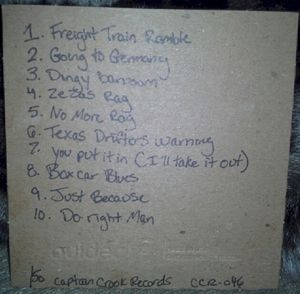 1. Freight Train Ramble
2. Going to Germany
3. Dingy Barroom
4. Zeza's Rag
5. No More Rag
6. Texas Drifters Warning
7. you put it in (I'll take it out)
8. Boxcar Blues
9. Just Because
10. Do right Man
guide
/50 Captain Crook Records CCR-046